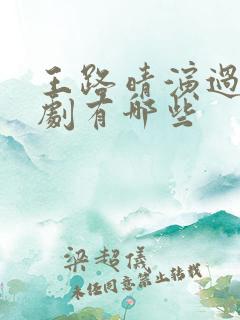 王路晴演過
劇有哪些
梁超儀
未经同意禁止转载